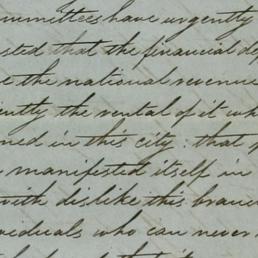 ommittees have urgently
sted that the financial de
e the national revenue
iently the rental of it wh
ned in this city: that
manifested itself in
with dislike this bran
viduals who can never